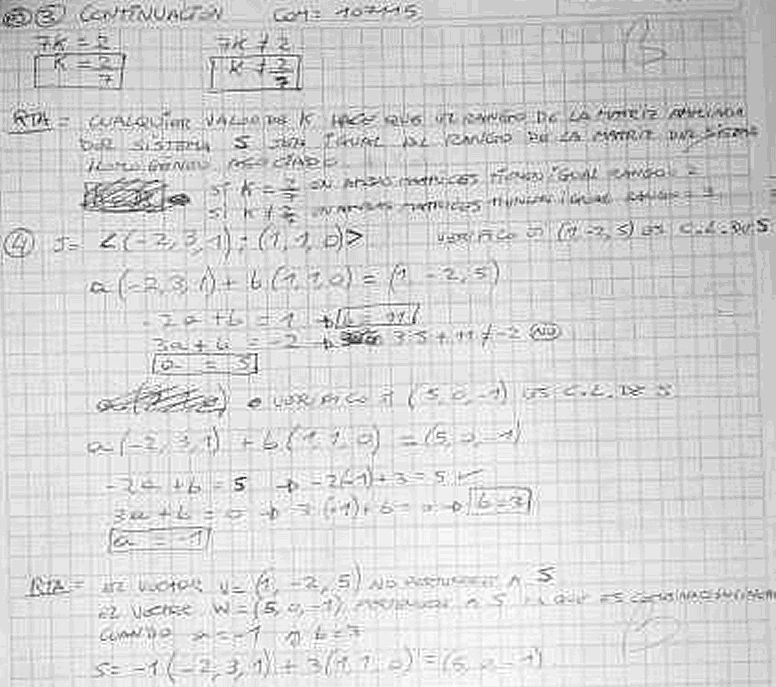 ③ CONTINUACIÓN COM= 107115
7K = 2 7K ≠ 2
K = 2/7 K ≠ 2/7
RTA = CUALQUIER VALOR DE K HACE QUE EL RANGO DE LA MATRIZ AMPLIADA
DEL SISTEMA S SEA IGUAL AL RANGO DE LA MATRIZ DEL SISTEMA
HOMOGENEO ASOCIADO.
SI K = 2/7 EN AMBAS MATRICES TIENEN IGUAL RANGO = 2
SI K ≠ 2/7 EN AMBAS MATRICES TIENEN IGUAL RANGO =
④ S= <(-2,3,1);(1,1,0)> VERIFICO SI (1,-2,5) ES C.L. DE S
a(-2,3,1) + b(1,1,0) = (1,-2,5)
-2a +b = 1 → b = 11
3a+b = -2 → 3.5+11 ≠ -2 NO
a = 5
• VERIFICO SI (5,0,-1) ES C.L. DE S
a(-2,3,1) + b(1,1,0) = (5,0,-1)
-2a +b = 5 → -2(-1)+3 = 5 ✓
3a+b = 0 → 3(-1)+b = 0 → b=3
a = -1
RTA = EL VECTOR V= (1,-2,5) NO PERTENECE A S
EL VECTOR W= (5,0,-1) PERTENECE A S YA QUE ES COMBINACION LINEAL
CUANDO a=-1 ∧ b=7
S= -1(-2,3,1) + 3(1,1,0) = (5,0,-1)